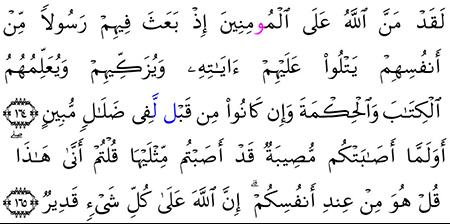 لَقَدْ مَنَّ ٱللَّهُ عَلَى ٱلْمُومِنِينَ إِذْ بَعَثَ فِيهِمْ رَسُولًا مِّنْ
أَنفُسِهِمْ يَتْلُوا۟ عَلَيْهِمْ ءَايَـٰتِهِۦ وَيُزَكِّيهِمْ وَيُعَلِّمُهُمُ
ٱلْكِتَـٰبَ وَٱلْحِكْمَةَ وَإِن كَانُوا۟ مِن قَبْل لَّفِى ضَلَـٰلٍ مُّبِينٍ ﴿١٦٤﴾
أَوَلَمَّا أَصَـٰبَتْكُم مُّصِيبَةٌ قَدْ أَصَبْتُم مِّثْلَيْهَا قُلْتُمْ أَنَّىٰ هَـٰذَا
قُلْ هُوَ مِنْ عِندِ أَنفُسِكُمْ ۗ إِنَّ ٱللَّهَ عَلَىٰ كُلِّ شَىْءٍ قَدِيرٌ ﴿١٦٥﴾